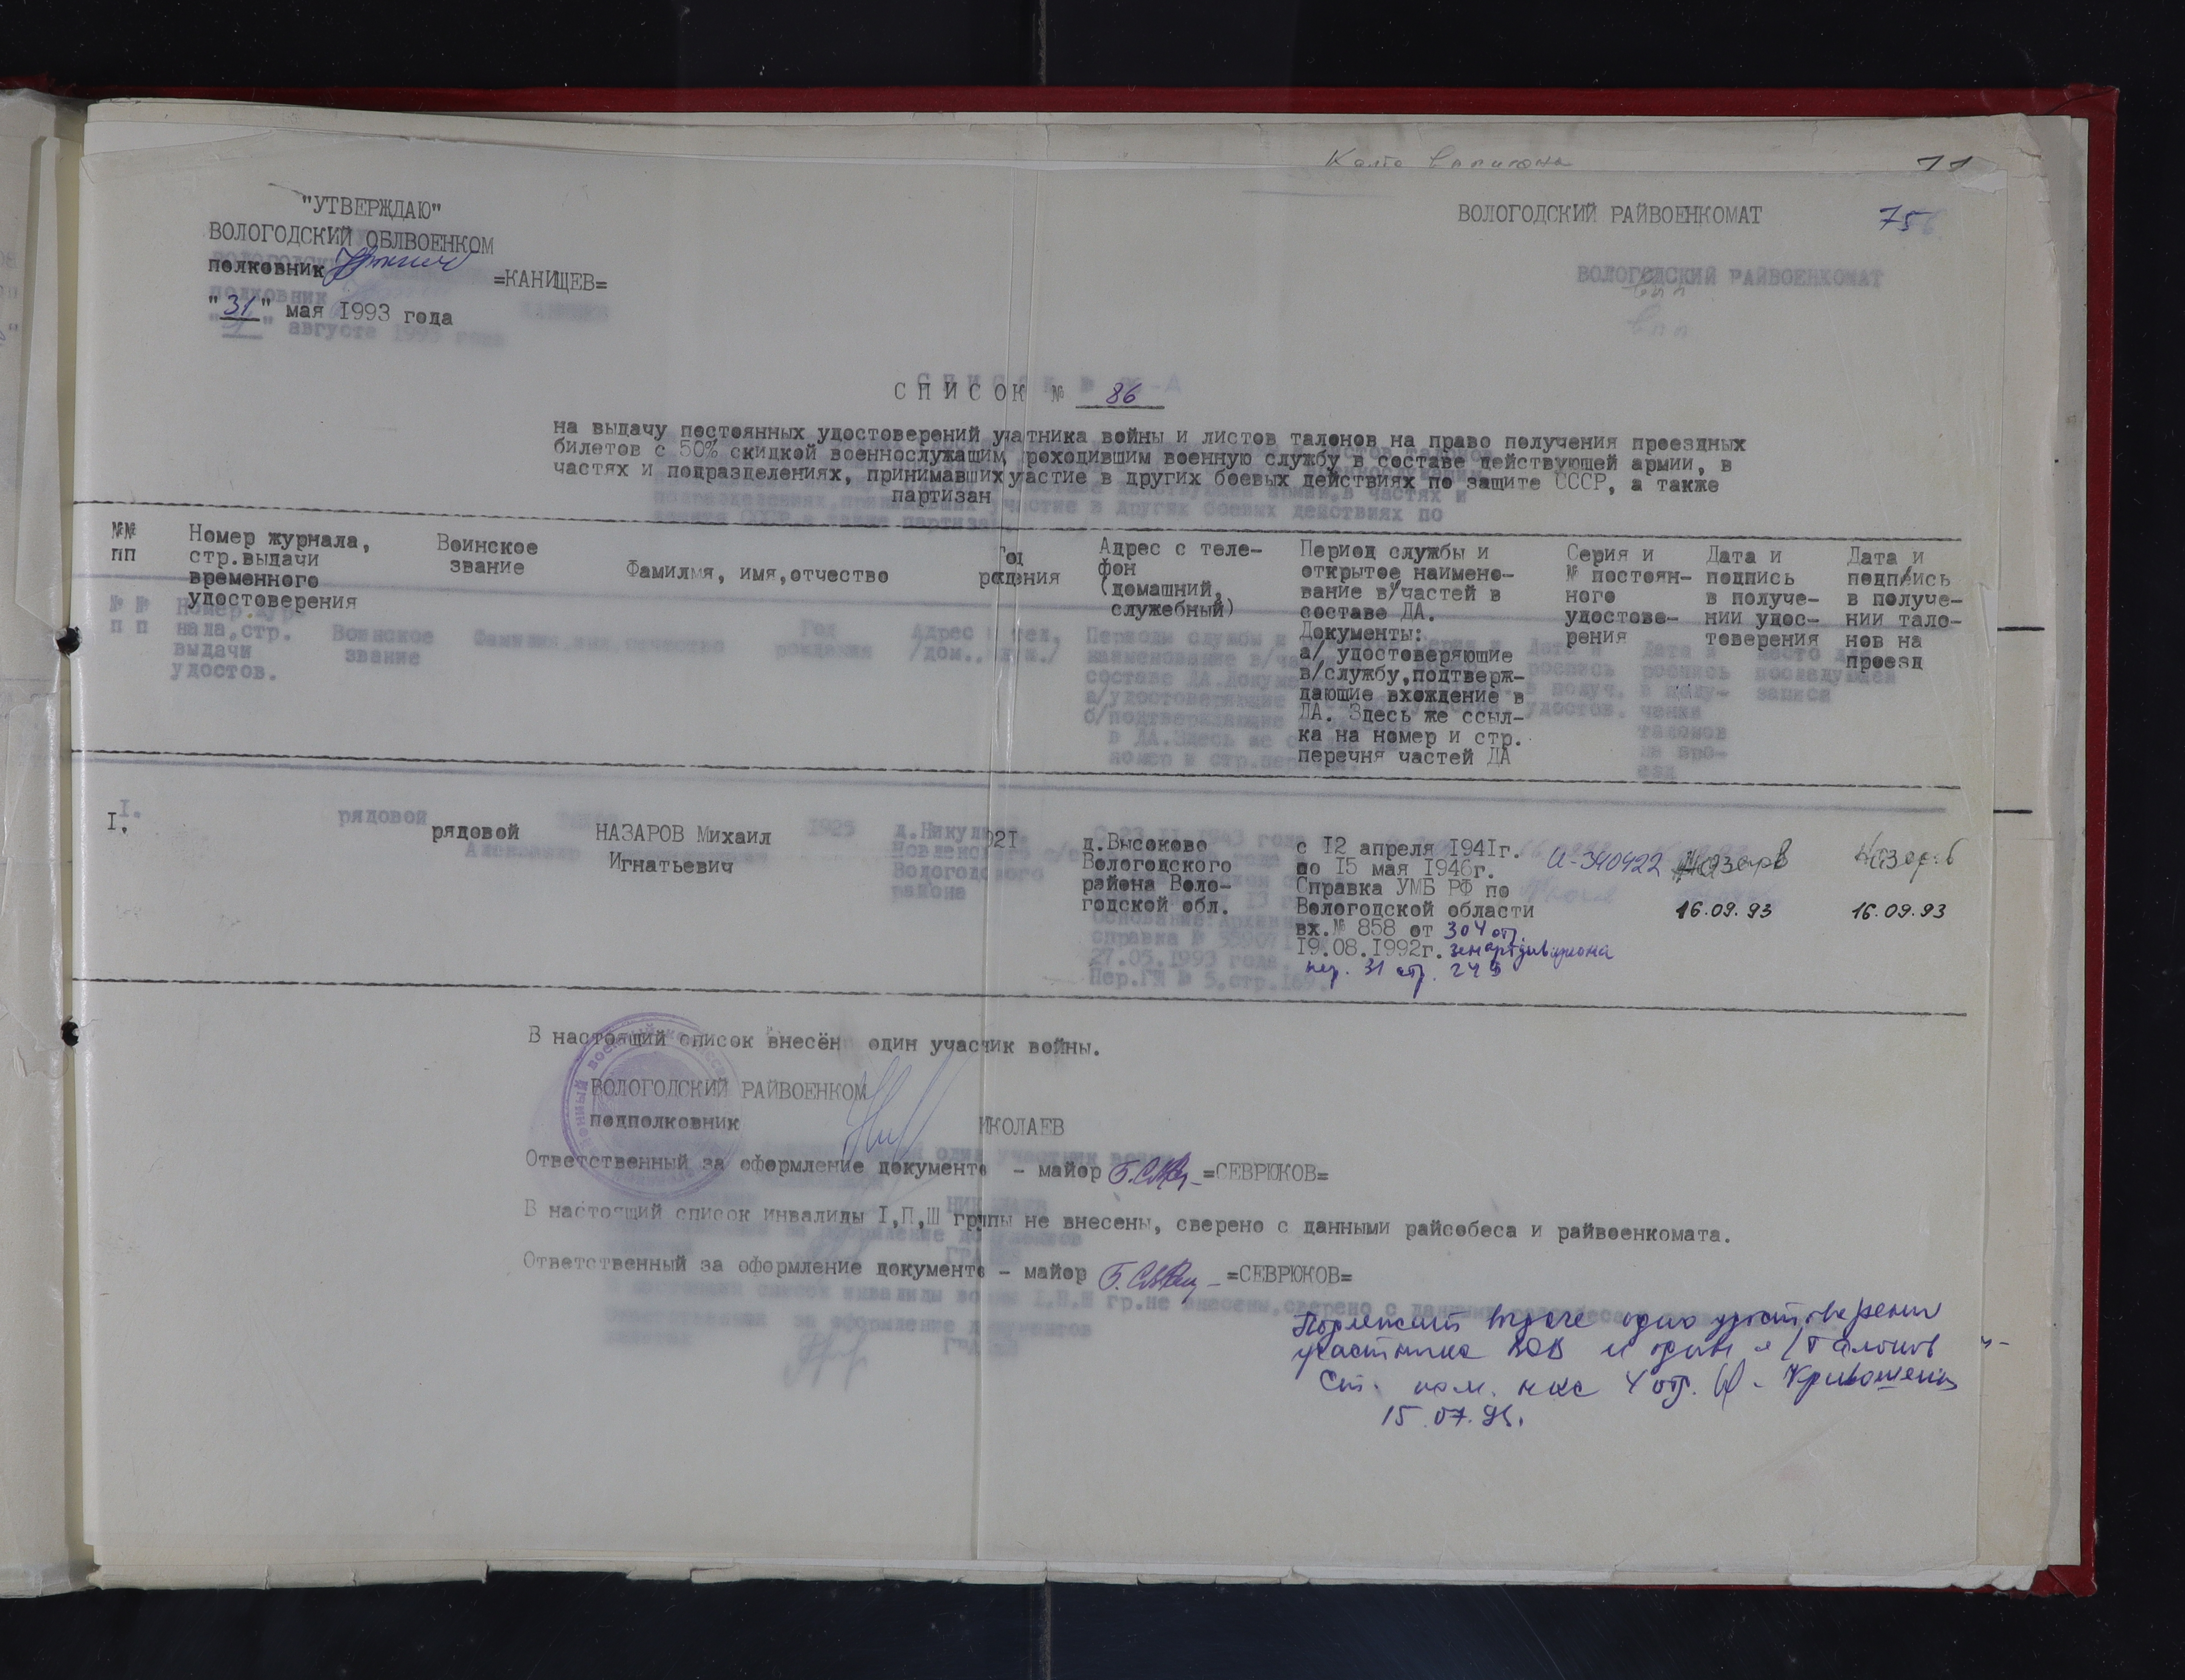 11
"УТВЕРЖДАЮ"
ВОЛОГОДСКИЙ ОБЛВОЕНКОМ
полковник =КАНИЩЕВ=
"31" мая 1993 года
ВОЛОГОДСКИЙ РАЙВОЕНКОМАТ
75
СПИСОК № 86
на выдачу постоянных удостоверений учатника войны и листов талонов на право получения проездных
билетов с 50% скидкой военнослужащим, роходившим военную службу в составе действующей армии, в
частях и подразделениях, принимавших уастие в других боевых действиях по защите СССР, а также
партизан
№№
пп
Номер журнала,
стр.выдачи
временного
удостоверения
Воинское
звание
Фамилия, имя,отчество
Год
рождения
Адрес с теле-
фон
(домашний,
служебный)
Период службы и
открытое наимено-
вание в/частей в
составе ДА.
Документы:
а/ удостоверяющие
в/службу,подтверж-
дающие вхождение в
ДА. Здесь же ссыл-
ка на номер и стр.
перечня частей ДА
Серия и
№ постоян-
ного
удостове-
рения
Дата и
подпись
в получе-
нии удос-
товерения
Дата и
подпись
в получе-
нии тало-
нов на
проезд
I.
рядовой
НАЗАРОВ Михаил
Игнатьевич
921
д.Высоково
Вологодского
района Воло-
годской обл.
с 12 апреля 1941г.
по 15 мая 1946г.
Справка УМБ РФ по
Вологодской области
вх.№ 858 от 304 от.
19.08.1992г. зенартдивизиона
пер. 31 стр. 249
И-340422
Назаров
16.09.93
Назаров
16.09.93
В настоящий список внесён один учасчик войны.
ВОЛОГОДСКИЙ РАЙВОЕНКОМ
подполковник ИКОЛАЕВ
Ответственный за оформление документо - майор =СЕВРЮКОВ=
В настоящий список инвалиды I,П,Ш грпы не внесены, сверено с данными райсобеса и райвоенкомата.
Ответственный за оформление документо - майор =СЕВРЮКОВ=
Подлежит выдаче одно удостоверение
участника ВОВ и один л/талонов
Ст. пом. нач 4 отд. Кривошеин
15.07.93.